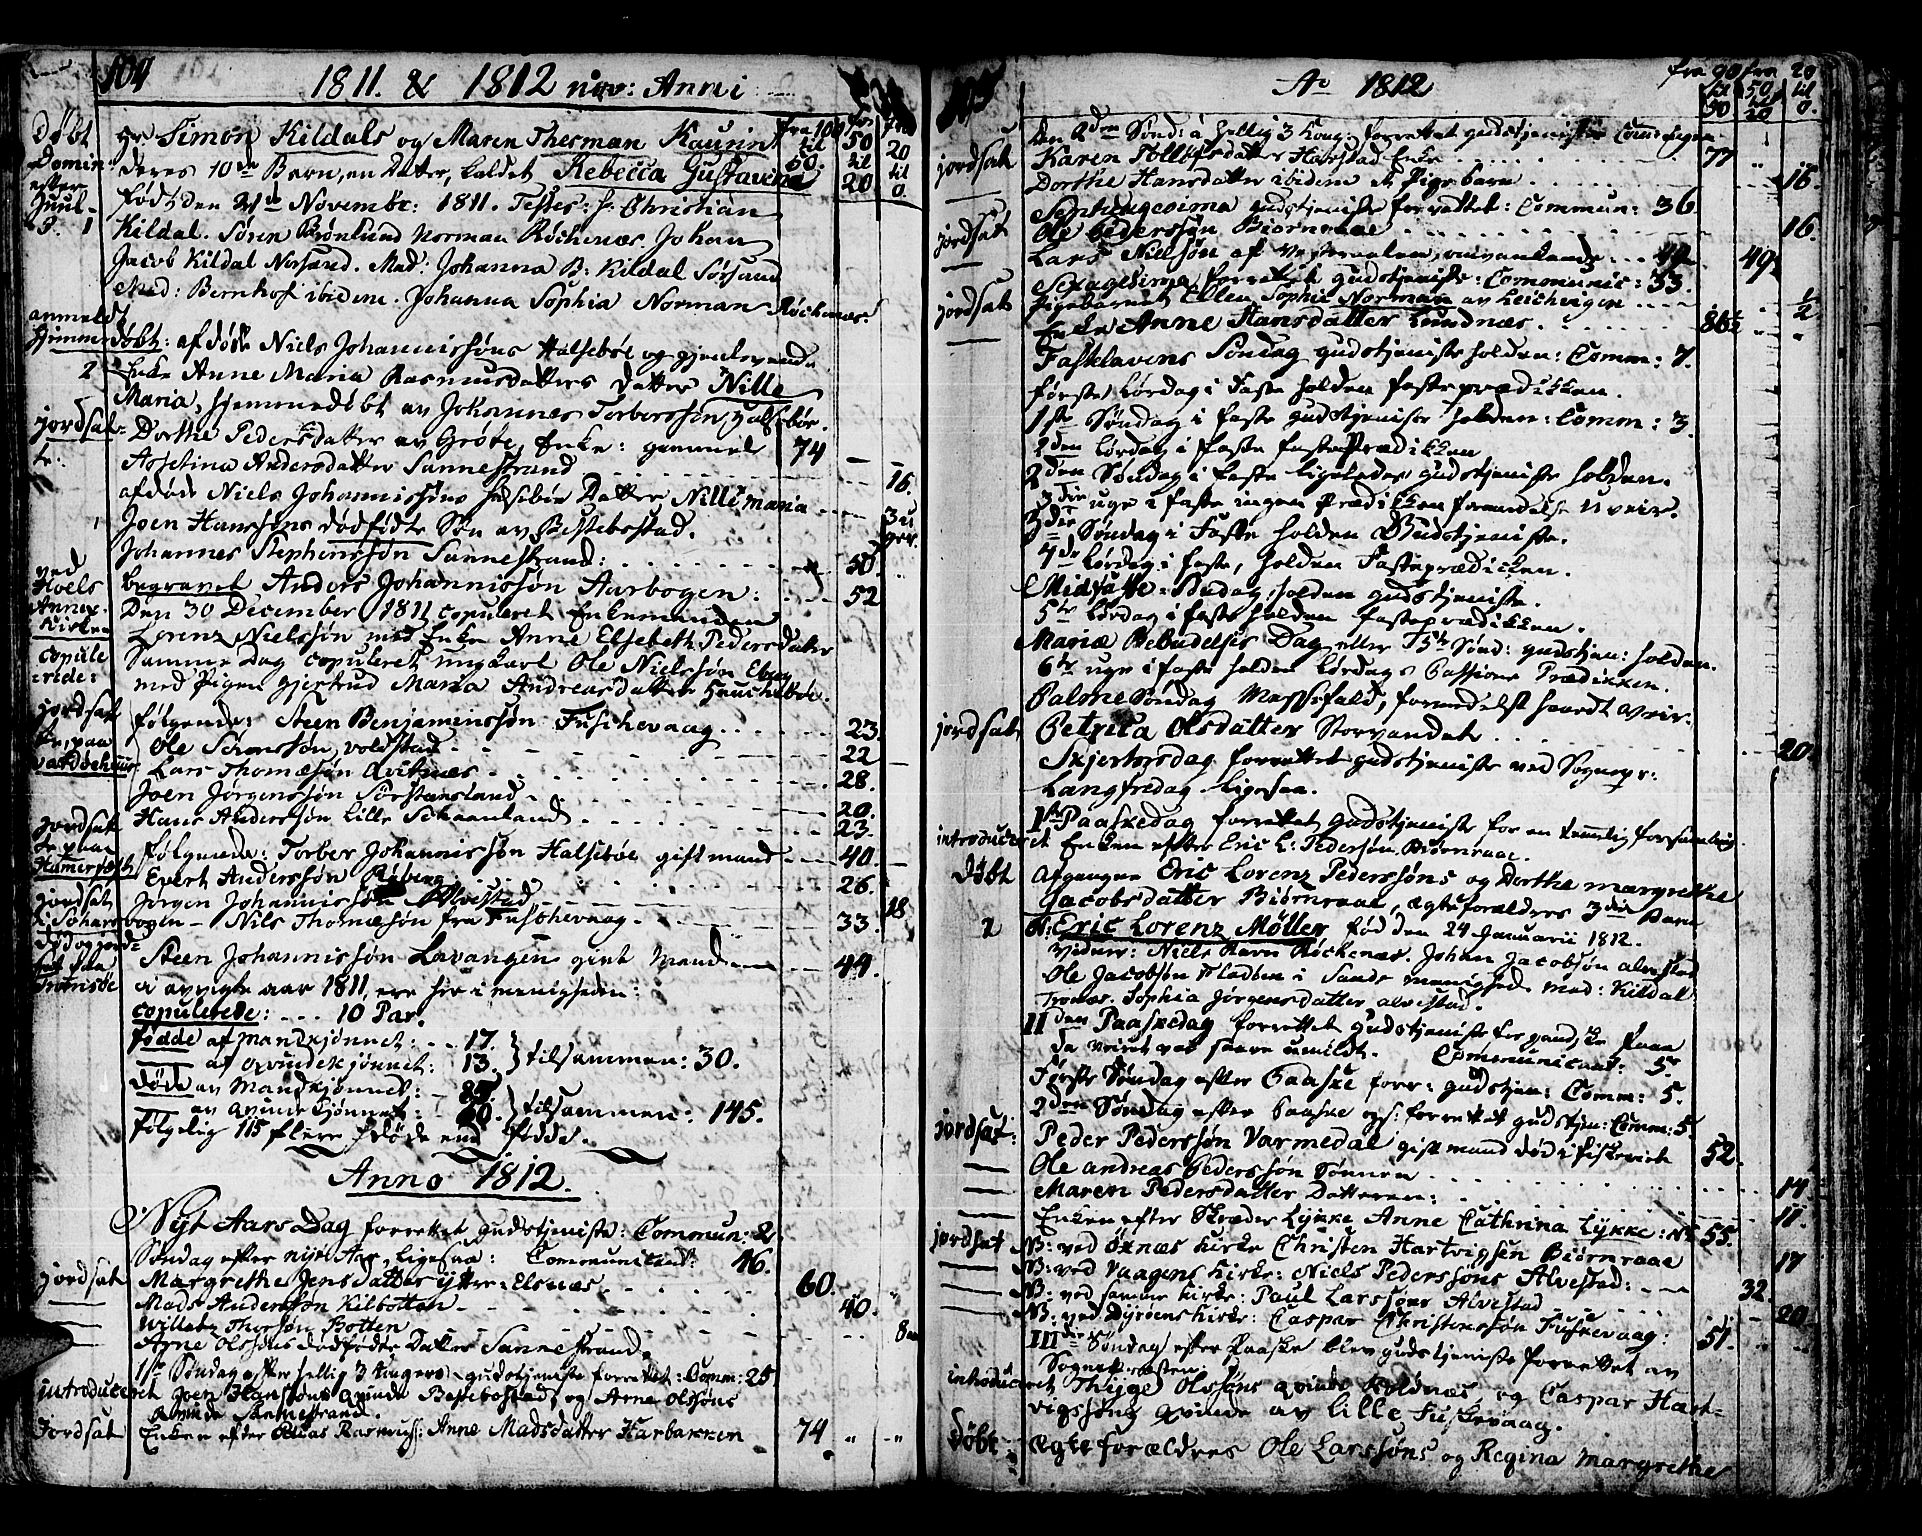 104
1811. & 1812 nov: Anni
døbt
Domin:
efter
Juul
Hr Simon Kildals og Maren Therman Kaurin
Deres 10de Barn, en Datter, kaldet Rebecca Gustavina
født den 21de Novembr: 1811. Testes: Hr Christian
Kildal. Søren Brønlund Norman Røckenæs. Johan
Jacob Kildal Norsand. Mad: Johanna B: Kildal Sørsand
Mad: Bernhof ibidem. Johanna Sophia Norman Røckenæs.
fra 100 til 50.
50 til 20
20 til 0
anmeldt
hjemmedøbt: afdøde Niels Johannissøns Halsebøe og gjenlevende
2 Enke Anne Maria Rasmusdatters Datter Nille
Maria, hjemmedøbt av Johannes Torberssøn Halsebøe.
jordsat= Dorthe Pedersdatter av Grøte, Enke: gammel 74
te: Asselina Andersdatter Sannestrand 16.
afdøde Niels Johannissøns Halsebøe Datter Nillemaria 3 uger.
Joen Hanssøns dødfødte Søn av Bessebostad.
Johannes Stephenssøn Sannestrand: 50.
ved
Hoels
Annex-
Kirken
begravet Anders Johannissøn Aarbogen: 52
copule
rede:
Den 30 December 1811 copuleret Enkemanden
Lorenz Nielssøn med Enke Anne Elsebeth Pedersdatter
Samme Dag copuleret ungkarl Ole Nielssøn
med Pigen Gjertrud Maria Andreasdatter
jordsat
te, paa
følgende: Steen Benjaminssøn Fuschevaag 23.
Ole Sørenssøn Voldstad 22
Lars Thomæsøn Qvitnæs 28.
Joen Jørgenssøn Sørstansland 20.
jordsat
te paa
Hamerfæst
Hans Anderssøn Lille Schaanland 23.
følgende: Torber Johannissøn Halsebøe gift mand 40.
Evert Anderssøn Røberg 26.
jordsat
Jørgen Johannissøn Alvestad 18
Nils Thomæsøn fra Fuschevaag 33.
død og jorde=
set fra
Tromsøe
Steen Johannissøn Lavangen givt Mand 44.
i avvigte aar 1811, ere her i menigheden:
copulerede: 10 Par.
fødde af mandkjønnet: 17.
af qvindekjønnet: 13. } tilsammen: 30.
døde av Mandkjønnet: 85
av qvindekjønnet: 60. } tilsammen: 145.
følgelig 115 flere døde end fødde.
Anno 1812.
Nyt Aars Dag forrettet gudstjeniste: Commun: 2.
Søndag efter nyt Aar, ligesaa: Communicant: 46.
jordsat Margrethe Jensdatter ytter: Elsnæs 60.
Mads Anderssøn Kilbotten 40.
Willaby Thorssøn Botten 8
Arne Olssøns dødfødte Datter Sannestrand.
1ste Søndag efter hellig 3 Kongers gudstjeniste forrettet: Comm: 25
introduceret Joen Hanssøns qvinde Bessebostad, og Arne Olssøns
qvinde Sannestrand.
Jordsat Enken efter Elias Rasmuss: Anne Madsdatter Harbakken 74 " "
105
Ao 1812
fra 90 til 50
fra 50 til 20
20 til 0.
den 2den Sønd: a hellig 3 Kong: forrettet gudstjeniste Comm: ingen
jordsat Karen Tollofsdatter Harstad Enke 77 "
Dorthe Hansdatter ibidem et Pigebarn 16.
Septuagesima gudstjeniste forrettet: Commun: 36.
jordsat Ole Pederssøn Biørnraae 16.
Lars Nielssøn af Vesteraalen, omvankende 49
Sexagesima forrettet gudstjeniste: Communic: 33.
jordsat Pigebarnet Ellen Sophie Norman av Leichvigen 1/2
Enke Anne Hansdatter Lundnæs. 86 1/2 " "
Fastelavens Søndag gudstjeniste holden: Comm: 7.
første Lørdag i Faste holden fasteprædikken.
1ste Søndag i faste gudstjeniste holden: Comm: 3.
2den Lørdag i faste fastePrædikken
2den Søndag i faste ligeledes gudstjeniste holden.
3die uge i faste ingen Prædikken formedelst Uveir.
3die Søndag i Faste holden Gudstjeniste.
4de Lørdag i faste, holden Fasteprædicken.
Midfaste Søndag holden gudstjeniste.
5te Lørdag i faste holden fasteprædikken.
Mariæ Bebudelsis Dag eller 5te Sønd: gudstjen: holden.
6te uge i faste holden Lørdags Passions Prædikken.
Palme Søndag Messefald, formedelst haardt Veir.
jordsat Petrica Olsdatter Storvandet 20.
Skjertorsdag forrettet gudstjeniste ved Sognepr:
Langfredag ligesaa.
1ste Paaskedag forrettet gudstjeniste for en temmelig forsamling.
introduceret Enken efter Eric L: Pederssøn Biørnraae.
Døbt Afgangne Eric Lorenz Pederssøns og Dorthe Margrethe
Jacobsdatter Biørnraae, ægteforældres 3die Barn
1 N: Eric Lorenz Møller, fød den 24 Januarii 1812.
Vidner: Niels Ravn Røckenæs. Johan Jacobssøn Alvestad
Ole Jacobsøn Fladben i Sands menighed. Mad: Kildal
Tronæs. Sophia Jørgensdatter Alvestad.
IIden Paaskedag forrettet gudstjeniste for gandske faaa
da veiret var saare umildt. Communicant: 5.
Første Søndag efter Paaske forr: gudstjen: Comm: 5.
2den Søndag efter Paaske ogs: forrettet gudstjen: Comm: 5.
jordsat: Peder Pederssøn Varmedal gift mand død i fiskeriet 52.
Ole Andreas Pederssøn Sønnen 14
Maren Pedersdatter Datteren: 11.
Enken efter Skræder Lykke Anne Cathrina Lykke: 55.
jordsat NB: ved Øxnæs Kirke Christen Hartvigsen Biørnraae 17
NB: ved Vaagens Kirke: Niels Pederssøns Alvestad: 32.
NB: ved samme Kirke: Paul Larssøns Alvestad 20.
NB: ved Dyrøens Kirke: Caspar Christenssøn Fuskevaag: 51.
IIIdie Søndag efter Paaske blev gudstjeniste forrettet av
Sognepræsten
introduceret Thyge Olssøns qvinde Koldnæs og Caspar Hart=
vigssøns qvinde av Lille Fuskevaag.
Døbt Ægteforældres Ole Larssøns og Regina Margrethe